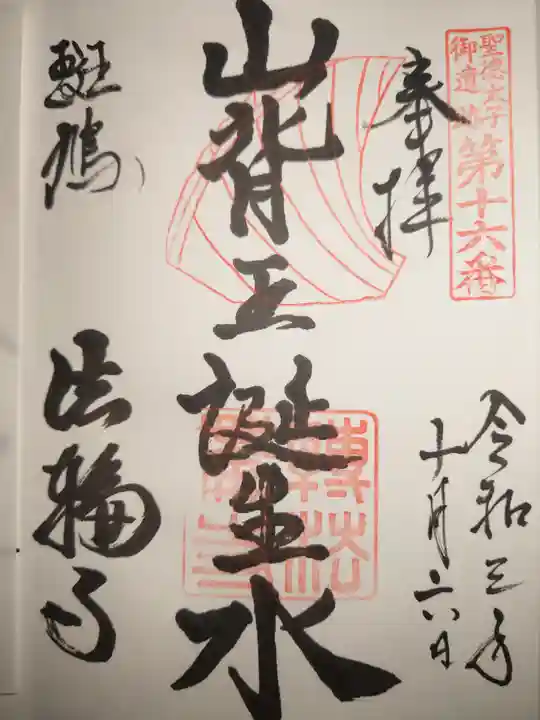 聖徳太子
御遺跡
第十六番
奉拝
令和三年
十月二八日
山背王誕生水
斑鳩
法輪寺